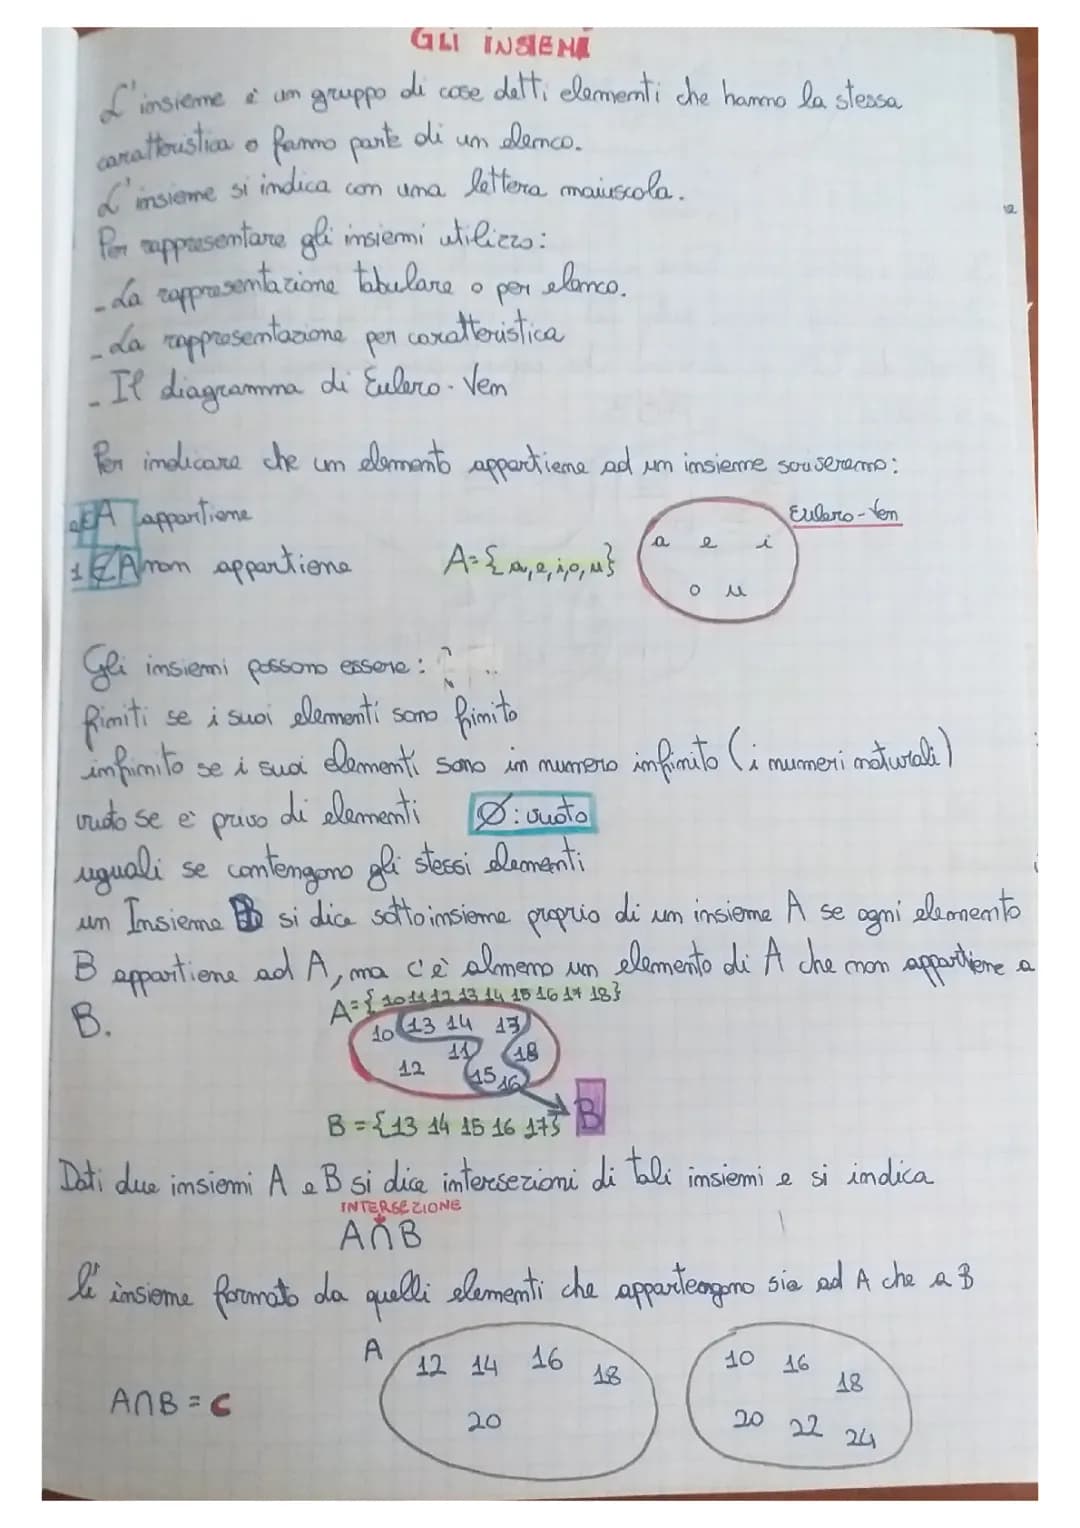 GLI INSIEMI
L'insieme è un gruppo di cose detti elementi che hanno la stessa
caratteristica o fanno parte di un elenco.
L'insieme si indica con una lettera maiuscola.
Per rappresentare gli insiemi utilizzo:
- La rappresentazione tabulare o per elenco.
- La rappresentazione per caratteristica
- Il diagramma di Eulero-Ven
Per indicare che un elemento appartiene ad un insieme scriveremo:
a∈A appartiene
Eulero-Ven
1∉A non appartiene
A={a,e,i,o,u}
a e i
o u
Gli insiemi possono essere:
finiti se i suoi elementi sono finito
infinito se i suoi elementi sono in numero infinito (i numeri naturali)
vuoto se è privo di elementi Ø: vuoto
uguali se contengono gli stessi elementi
un Insieme B si dice sottoinsieme proprio di un insieme A se ogni elemento
B appartiene ad A, ma c'è almeno un elemento di A che non appartiene a
B.
A={10 11 12 13 14 15 16 17 18}
10 13 14 17
11 18
12 15 16
B
B={13 14 15 16 17}
Dati due insiemi A e B si dice intersezioni di tali insiemi e si indica
INTERSEZIONE
A∩B
l'insieme formato da quelli elementi che appartengono sia ad A che a B
A
12 14 16 18
20
10 16
18
20 22 24
A∩B = C